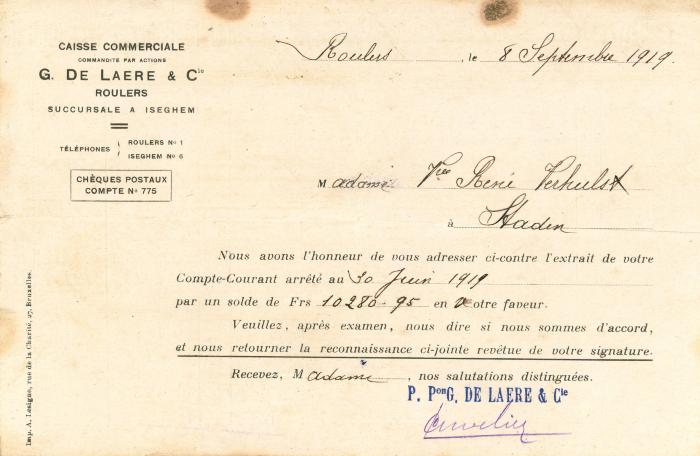 CAISSE COMMERCIALE
COMMANDITE PAR ACTIONS
G. DE LAERE & Cie
ROULERS
SUCCURSALE A ISEGHEM
TÉLÉPHONES
ROULERS No 1
ISEGHEM No 6
CHÈQUES POSTAUX
COMPTE No 775
Roulers, le 8 Septembre 1919.
Madame Vve René Verhulst
à Staden
Nous avons l'honneur de vous adresser ci-contre l'extrait de votre
Compte-Courant arrêté au 30 Juin 1919
par un solde de Frs 10280-95 en Votre faveur.
Veuillez, après examen, nous dire si nous sommes d'accord,
et nous retourner la reconnaissance ci-jointe revêtue de votre signature.
Recevez, Madame, nos salutations distinguées.
P. Pon G. DE LAERE & Cie
Imp. A. Lesigne, rue de la Charité, 27, Bruxelles.